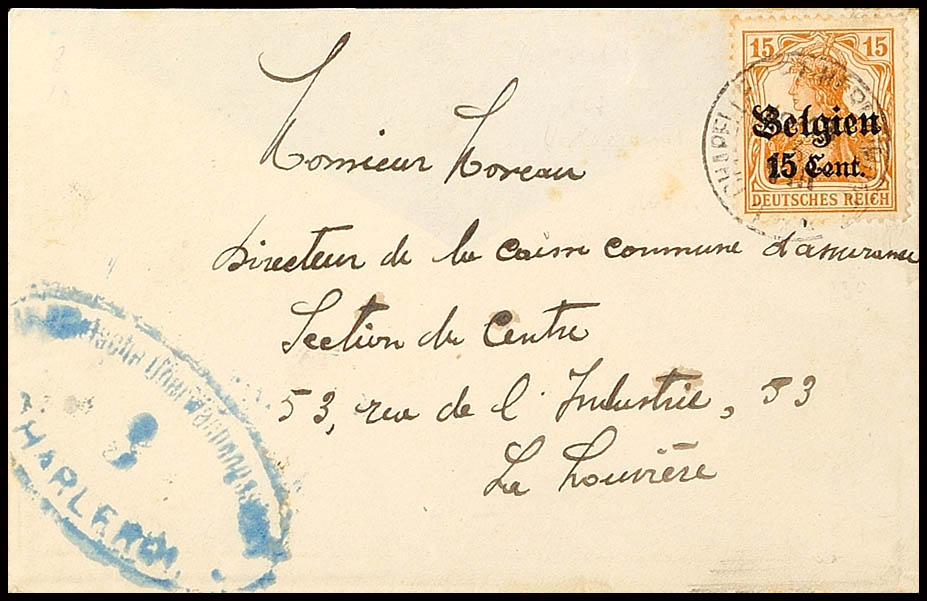 15 15
Belgien
15 Cent.
DEUTSCHES REICH
Monsieur Moreau
Directeur de la caisse commune d'assurance
Section du Centre
53, rue de l'Industrie, 53
La Louvière
CHAPELLE
HARLEROI